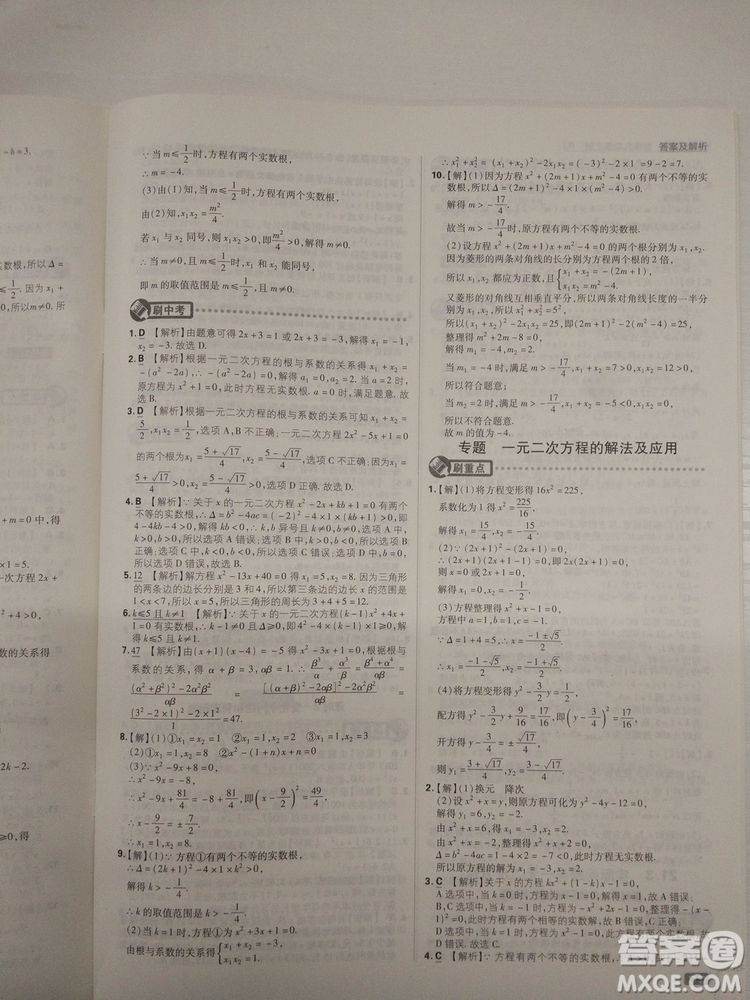 答案及解析
-b=3.
实数根,所以Δ=
所以m≠0.所
+m=0中,
=1.5.
一次方程2x+
+4>0,
的关系得
2k-2.
得
∵当m≤1/2时,方程有两个实数根,
∴m=-4.
(3)由(1)知,当m≤1/2时,方程有两个实数根,
由(2)知,x₁x₂=m²/4.
若x₁与x₂同号,则x₁x₂>0,即m²/4>0,解得m≠0,
∴当m≤1/2,且m≠0时,x₁和x₂能同号,
即m的取值范围是m≤1/2,且m≠0.
刷中考
1. D 【解析】由题意可得2x+3=1或2x+3=-3,解得x₁=-1,
x₂=-3.故选D.
2. B 【解析】根据一元二次方程的根与系数的关系得x₁+x₂=
-(a²-2a),∴-(a²-2a)=0,解得a₁=0,a₂=2.当a=2时,
原方程为x²+1=0,此时方程无实数根.a=0时,满足题意.故
选B.
3. D 【解析】根据一元二次方程的根与系数的关系可知x₁+x₂=
5/2,x₁x₂=1/2,选项A,B不正确;一元二次方程2x²-5x+1=0
的两个根为x₁=(5+√17)/4,x₂=(5-√17)/4,∴x₁=(5+√17)/4>0,x₂=(5-√17)/4
>0,选项C不正确,选项D正确.故选D.
4. B 【解析】∵关于x的一元二次方程x²-2x+kb+1=0有两个
不等的实数根,∴Δ=b²-4ac=(-2)²-4×1×(kb+1)>0,即
4-4kb-4>0,解得kb<0,∴k,b异号且k≠0,b≠0.选项A中,
k>0,b>0,所以选项A错误;选项B中,k>0,b<0,所以选项B
正确;选项C中,k<0,b<0,所以选项C错误;选项D中,k>0,
b=0,所以选项D错误.故选B.
5. 12 【解析】解方程x²-13x+40=0得x₁=5,x₂=8.因为三角形
的两边长分别是3和4,所以第三条边的边长x的范围是
1<x<7,所以x=5,所以三角形的周长为3+4+5=12.
6. k≤5且k≠1 【解析】∵关于x的一元二次方程(k-1)x²+4x+
1=0有实数根,∴k-1≠0且Δ≥0,即4²-4(k-1)×1≥0,解得
k≤5且k≠1.
7. 47 【解析】由(x+1)(x-4)=-5得x²-3x+1=0,根据根与
系数的关系,得α+β=3,αβ=1,∴β³/α+α³/β=(β⁴+α⁴)/αβ=
((α²+β²)²-2α²β²)/αβ=([(α+β)²-2αβ]²-2α²β²)/αβ=
((3²-2×1)²-2×1²)/1=47.
8. 【解】(1)①x₁=1,x₂=1 ②x₁=1,x₂=2 ③x₁=1,x₂=3
(2)①x₁=1,x₂=n ②x²-(1+n)x+n=0
(3)∵x²-9x+8=0,
∴x²-9x=-8,
∴x²-9x+81/4=-8+81/4,即(x-9/2)²=49/4,
∴x-9/2=±7/2,
∴x₁=1,x₂=8.
9. 【解】(1)∵方程①有两个不等的实数根,
∴Δ=(2k+1)²-4×1×k²>0,
解得k>-1/4.
∴k的取值范围是k>-1/4.
(2)当k=1时,方程①为x²+3x+1=0,
由根与系数的关系得{x₁+x₂=-3, x₁x₂=1,
∴x₁²+x₂²=(x₁+x₂)²-2x₁x₂=(-3)²-2×1=9-2=7.
10. 【解】(1)因为方程x²+(2m+1)x+m²-4=0有两个不等的实
数根,所以Δ=(2m+1)²-4×1×(m²-4)>0,
解得m>-17/4.
故当m>-17/4时,原方程有两个不等的实数根.
(2)设方程x²+(2m+1)x+m²-4=0的两个根分别为x₁,x₂.
因为菱形的两条对角线的长分别为方程两个根的2倍,
所以x₁,x₂都应为正数,即{x₁+x₂=-(2m+1), x₁x₂=m²-4.
又菱形的对角线互相垂直平分,且两条对角线长度的一半分
别为x₁,x₂,所以x₁²+x₂²=5²,
所以(x₁+x₂)²-2x₁x₂=25,即(2m+1)²-2(m²-4)=25,
解得m²+2m-8=0,
所以m₁=-4,m₂=2.
当m=-4时,m>-17/4,x₁+x₂=-(2m+1)=7,x₁x₂=m²-4=12,
所以符合题意;
当m=2时,m>-17/4,x₁+x₂=-(2m+1)=-5,x₁x₂=m²-4=0,
所以不符合题意.
故m的值为-4.
专题 一元二次方程的解法及应用
刷重点
1. 【解】(1)将方程变形得16x²=225,
系数化为1得x²=225/16,
解得x₁=15/4,x₂=-15/4.
(2)∵(2x+1)²=2x+1,
∴(2x+1)²-(2x+1)=0,∴(2x+1)(2x+1-1)=0,
则x=0或2x+1=0,
解得x₁=0,x₂=-1/2.
(3)方程变形得x²+x-1=0,
方程中a=1,b=1,c=-1,
∵Δ=1+4=5>0,∴x=(-1±√5)/2,
∴x₁=(-1-√5)/2,x₂=(-1+√5)/2.
(4)将方程变形得y²-3/2y=1/2,
配方得y²-3/2y+9/16=17/16,即(y-3/4)²=17/16,
开方得y-3/4=±√17/4,
则y₁=(3+√17)/4,y₂=(3-√17)/4.
2. 【解】(1)换元 降次
(2)设x²+x=y,则原方程可化为y²-4y-12=0,
解得y₁=6,y₂=-2.
由x²+x=6,得x₁=-3,x₂=2.
由x²+x=-2,得方程x²+x+2=0,
Δ=b²-4ac=1-4×2=-7<0,此时方程无解.
所以原方程的解为x₁=-3,x₂=2.
3. C 【解析】关于x的方程kx²+(1-k)x-1=0,
A选项中,当k=0时,x-1=0,则x=1,故A错误;
B选项中,当k=1时,x²-1=0,方程有两个实数解,故B错误;
C选项中,当k=-1时,-x²+2x-1=0,整理得-(x-
1)²=0,则方程有两个相等的实数解,故C正确;
D选项中,当k≠0时,方程有两个实数解,故
D错误.故选C.
4. C 【解析】因为方程有两个不等的实数根,
答案圈
MXQE.COM